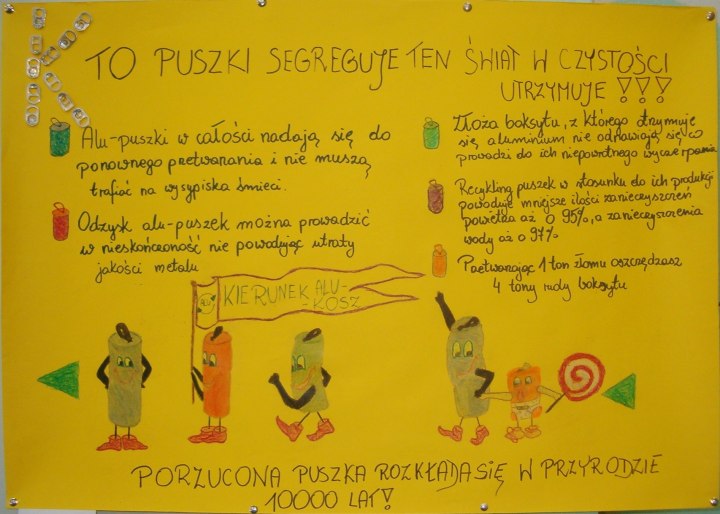 TO PUSZKI SEGREGUJE TEN ŚWIAT W CZYSTOŚCI
UTRZYMUJE !!!
Alu-puszki w całości nadają się do
ponownego przetwarzania i nie muszą
trafiać na wysypiska śmieci.
Odzysk alu-puszek można prowadzić
w nieskończoność nie powodując utraty
jakości metalu
Złoża boksytu, z którego otrzymuje
się aluminium nie odnawiają się co
prowadzi do ich niepowrotnego wyczerpania
Recykling puszek w stosunku do ich produkcji
powoduje mniejsze ilości zanieczyszczeń
powietrza aż o 95%, a zanieczyszczenia
wody aż o 97%
Przetwarzając 1 ton złomu oszczędzasz
4 tony rudy boksytu
KIERUNEK ALU-
-KOSZ
PORZUCONA PUSZKA ROZKŁADA SIĘ W PRZYRODZIE
10000 LAT!